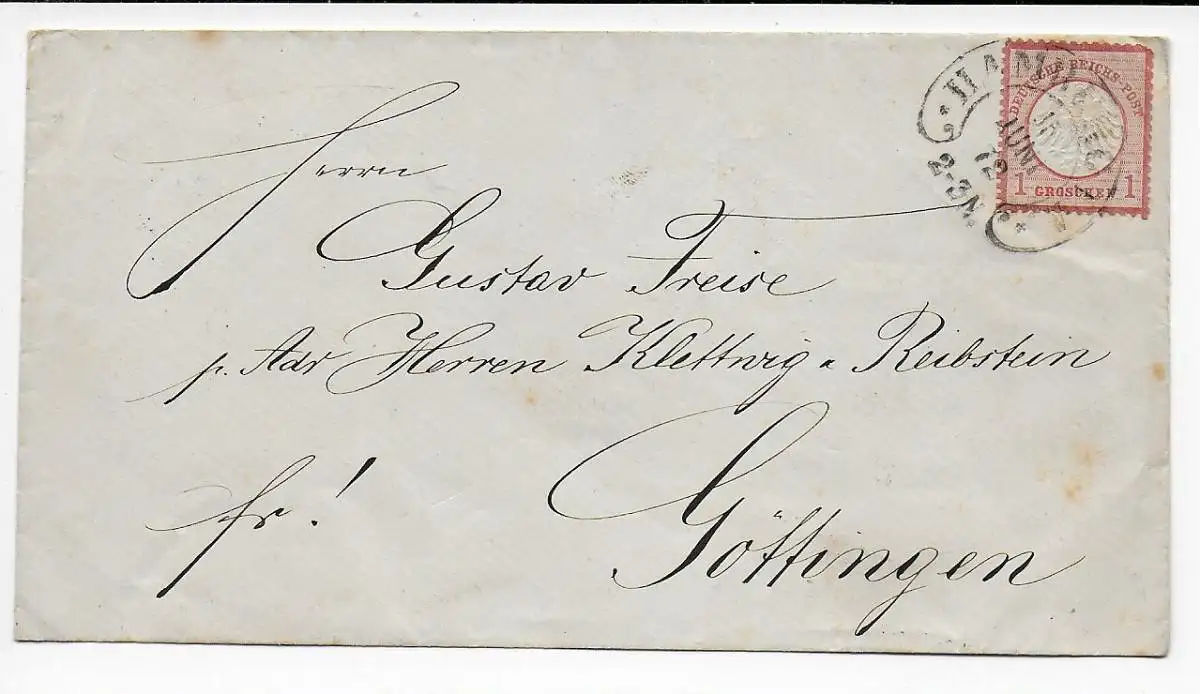 DEUTSCHE REICHS-POST
1 GROSCHEN 1
JUN
72
2-3N.
Herrn
Gustav Freise
p. Adr Herren Klettwig & Reibstein
fr!
Göttingen